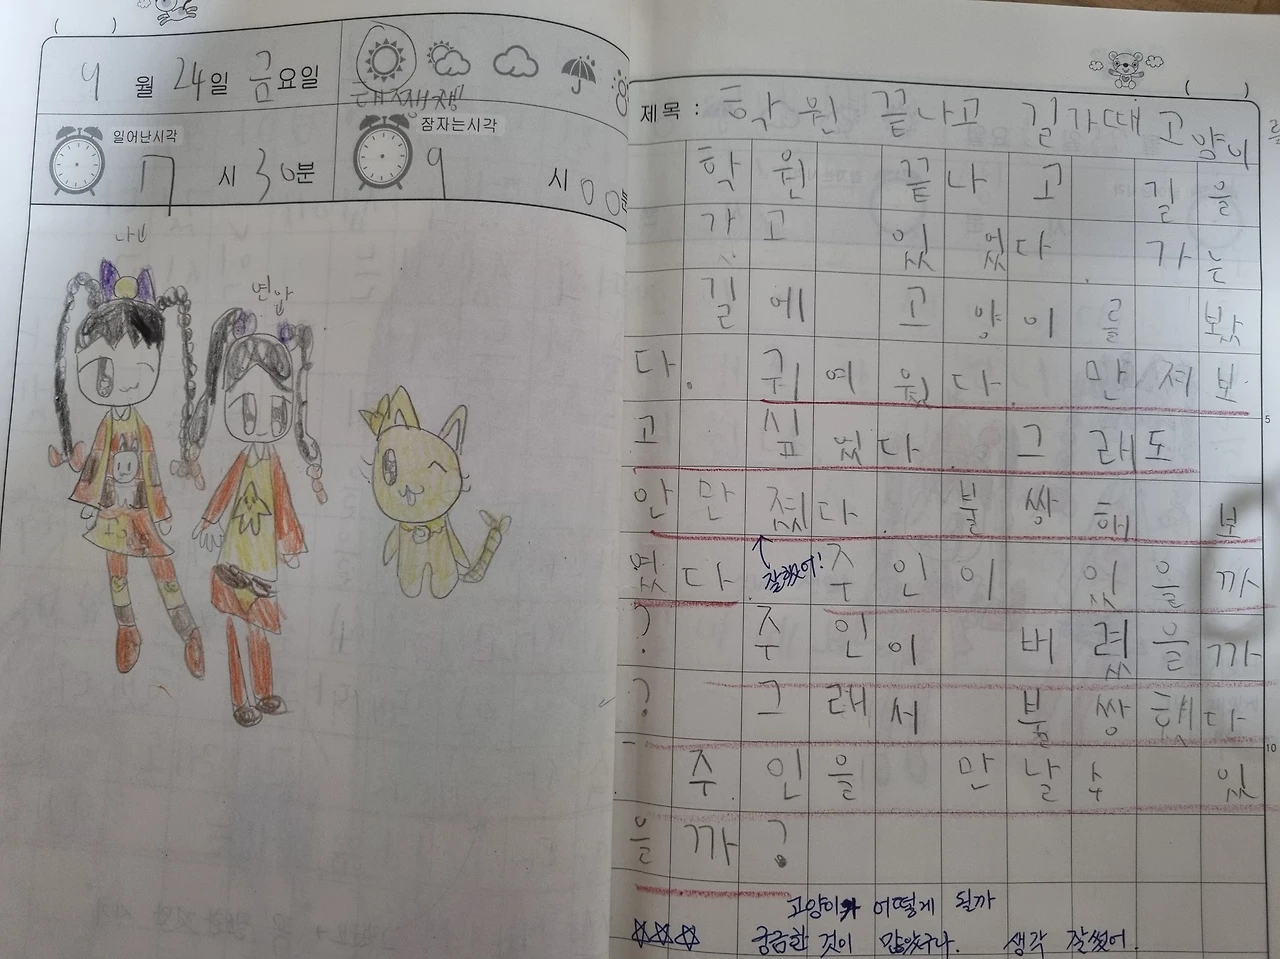 9월 24일 금요일
대쨍쨍!!
일어난시각
7시 30분
잠자는시각
9시 00분
나
연압
제목 : 학원 끝나고 길가때 고양이를
학원 끝나고 길을
가고 있었다. 가는
길에 고양이를 봤
다. 귀여웠다. 만져보
고 싶었다. 그래도
안만졌다. 불쌍해 보
였다. 주인이 있을까
잘했어!
? 주인이 버렸을까
? 그래서 불쌍했다
주인을 만날수 있
을까?
5
10
고양이가 어떻게 될까
궁금한 것이 많았구나. 생각 잘썼어.